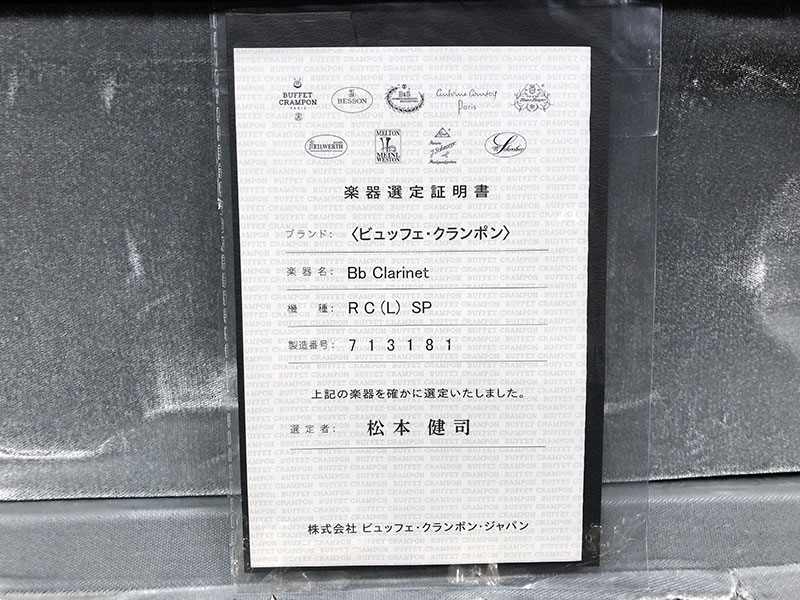 BUFFET CRAMPON PARIS
BESSON
B&S
Antoine Courtois Paris
Hans Hoyer
KEILWERTH
MELTON MEINL WESTON
J. Schreiber
楽器選定証明書
ブランド: 〈ビュッフェ・クランポン〉
楽器名: Bb Clarinet
機種: RC(L) SP
製造番号: 713181
上記の楽器を確かに選定いたしました。
選定者: 松本 健司
株式会社 ビュッフェ・クランポン・ジャパン